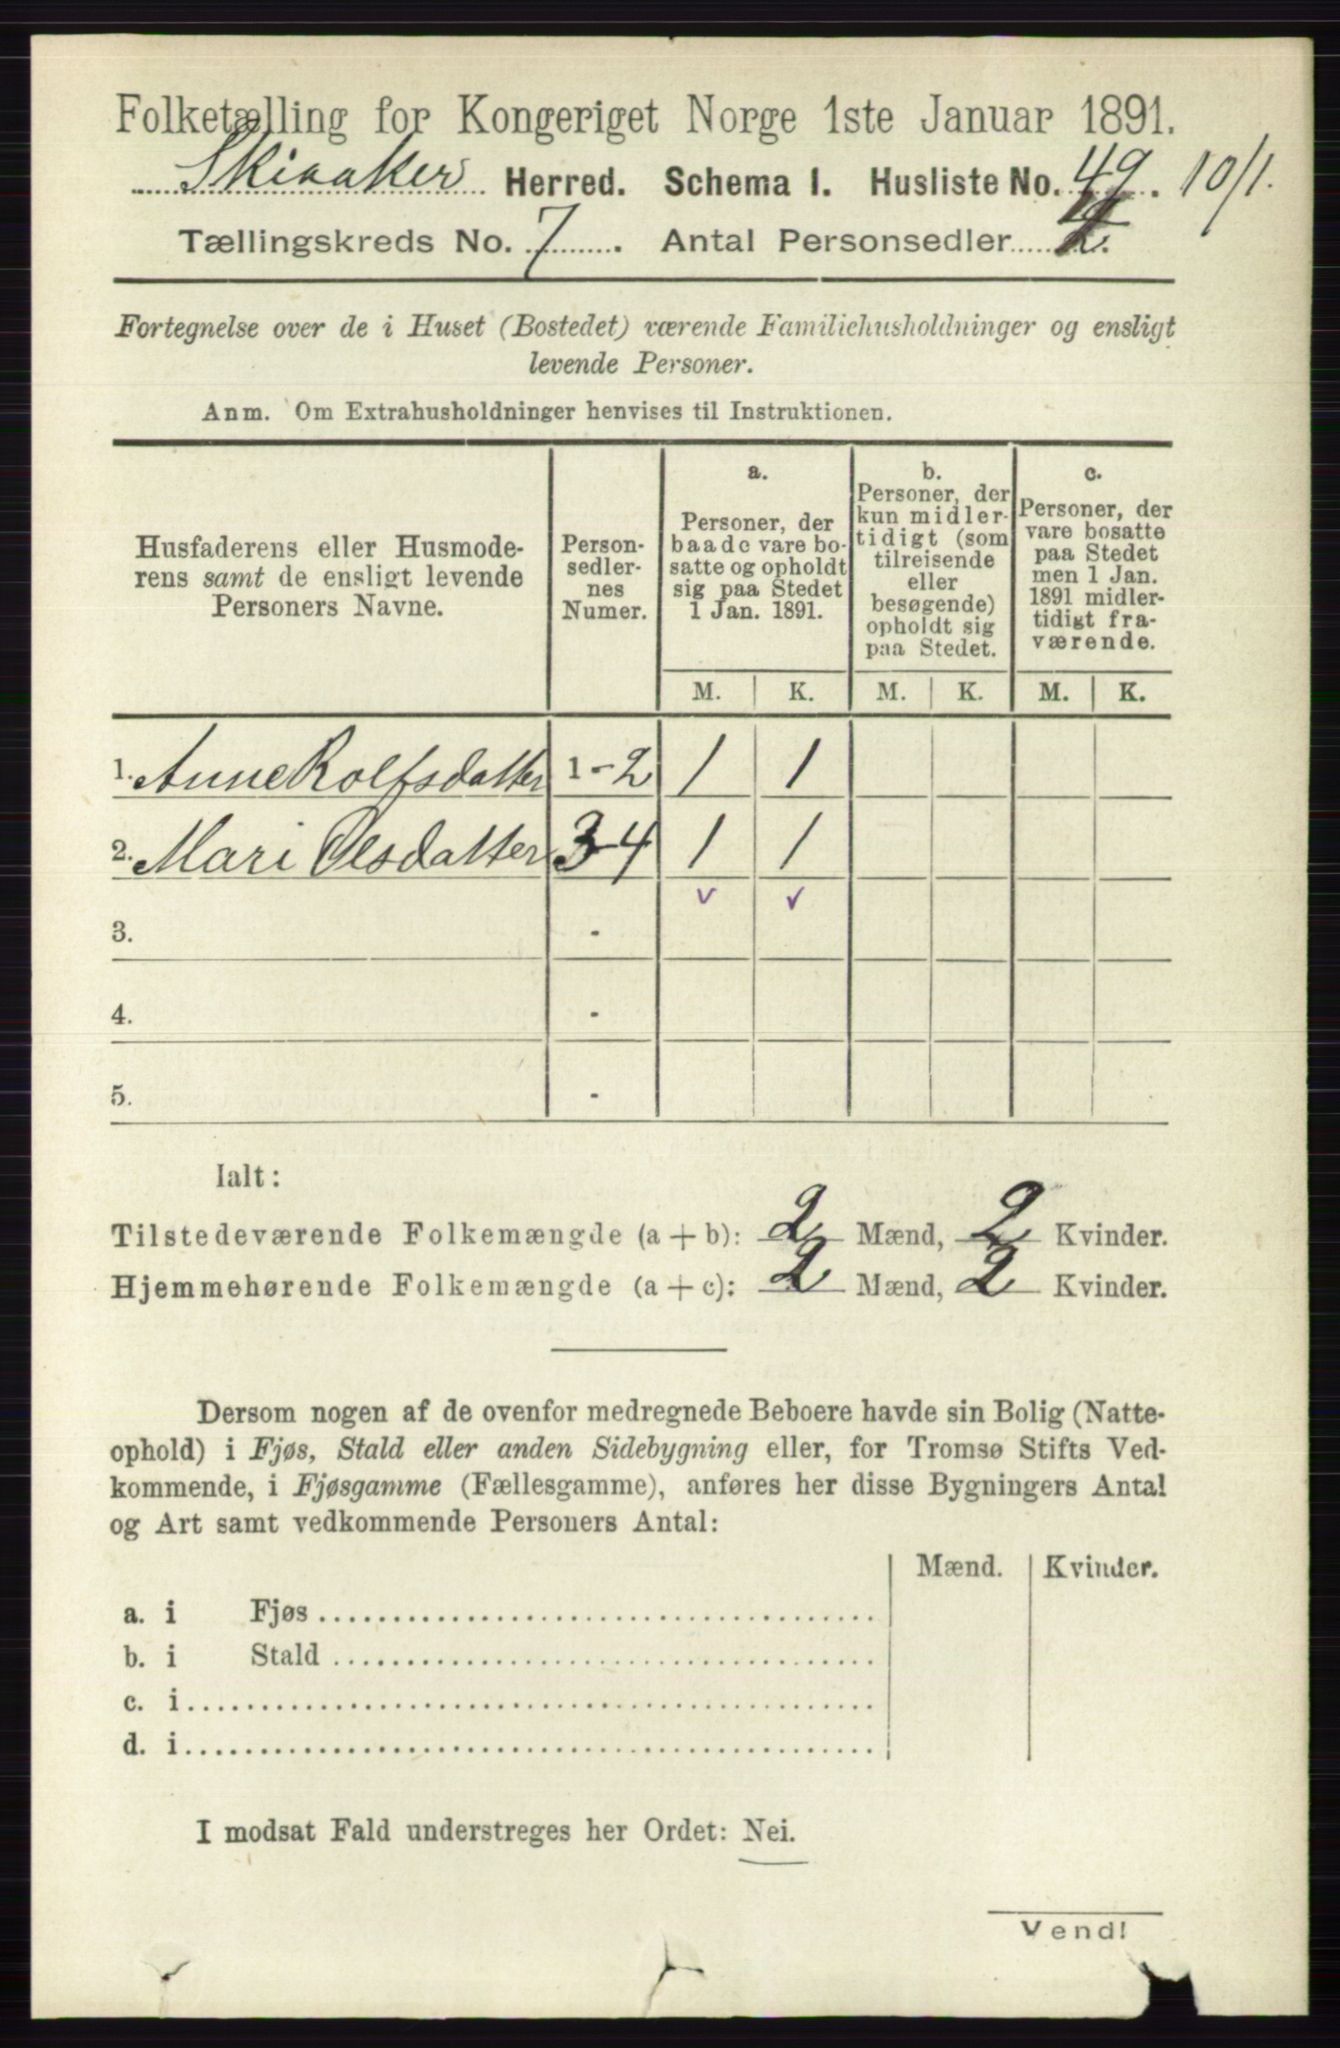 Folketælling for Kongeriget Norge 1ste Januar 1891.
Skiaaker Herred. Schema I. Husliste No. 49. 10/1.
Tællingskreds No. 7. Antal Personsedler 4.
Fortegnelse over de i Huset (Bostedet) værende Familiehusholdninger og ensligt
levende Personer.
Anm. Om Extrahusholdninger henvises til Instruktionen.
Husfaderens eller Husmode-
rens samt de ensligt levende
Personers Navne.
Person-
sedler-
nes
Numer.
a.
Personer, der
baade vare bo-
satte og opholdt
sig paa Stedet
1 Jan. 1891.
b.
Personer, der
kun midler-
tidigt (som
tilreisende
eller
besøgende)
opholdt sig
paa Stedet.
c.
Personer, der
vare bosatte
paa Stedet
men 1 Jan.
1891 midler-
tidigt fra-
værende.
M. K. M. K. M. K.
1. Anne Rolfsdatter 1-2 1 1
2. Mari Olsdatter 3-4 1 1
3. -
4. -
5. -
Ialt:
Tilstedeværende Folkemængde (a + b): 2 Mænd, 2 Kvinder.
Hjemmehørende Folkemængde (a + c): 2 Mænd, 2 Kvinder.
Dersom nogen af de ovenfor medregnede Beboere havde sin Bolig (Natte-
ophold) i Fjøs, Stald eller anden Sidebygning eller, for Tromsø Stifts Ved-
kommende, i Fjøsgamme (Fællesgamme), anføres her disse Bygningers Antal
og Art samt vedkommende Personers Antal:
Mænd. Kvinder.
a. i Fjøs
b. i Stald
c. i
d. i
I modsat Fald understreges her Ordet: Nei.
Vend!